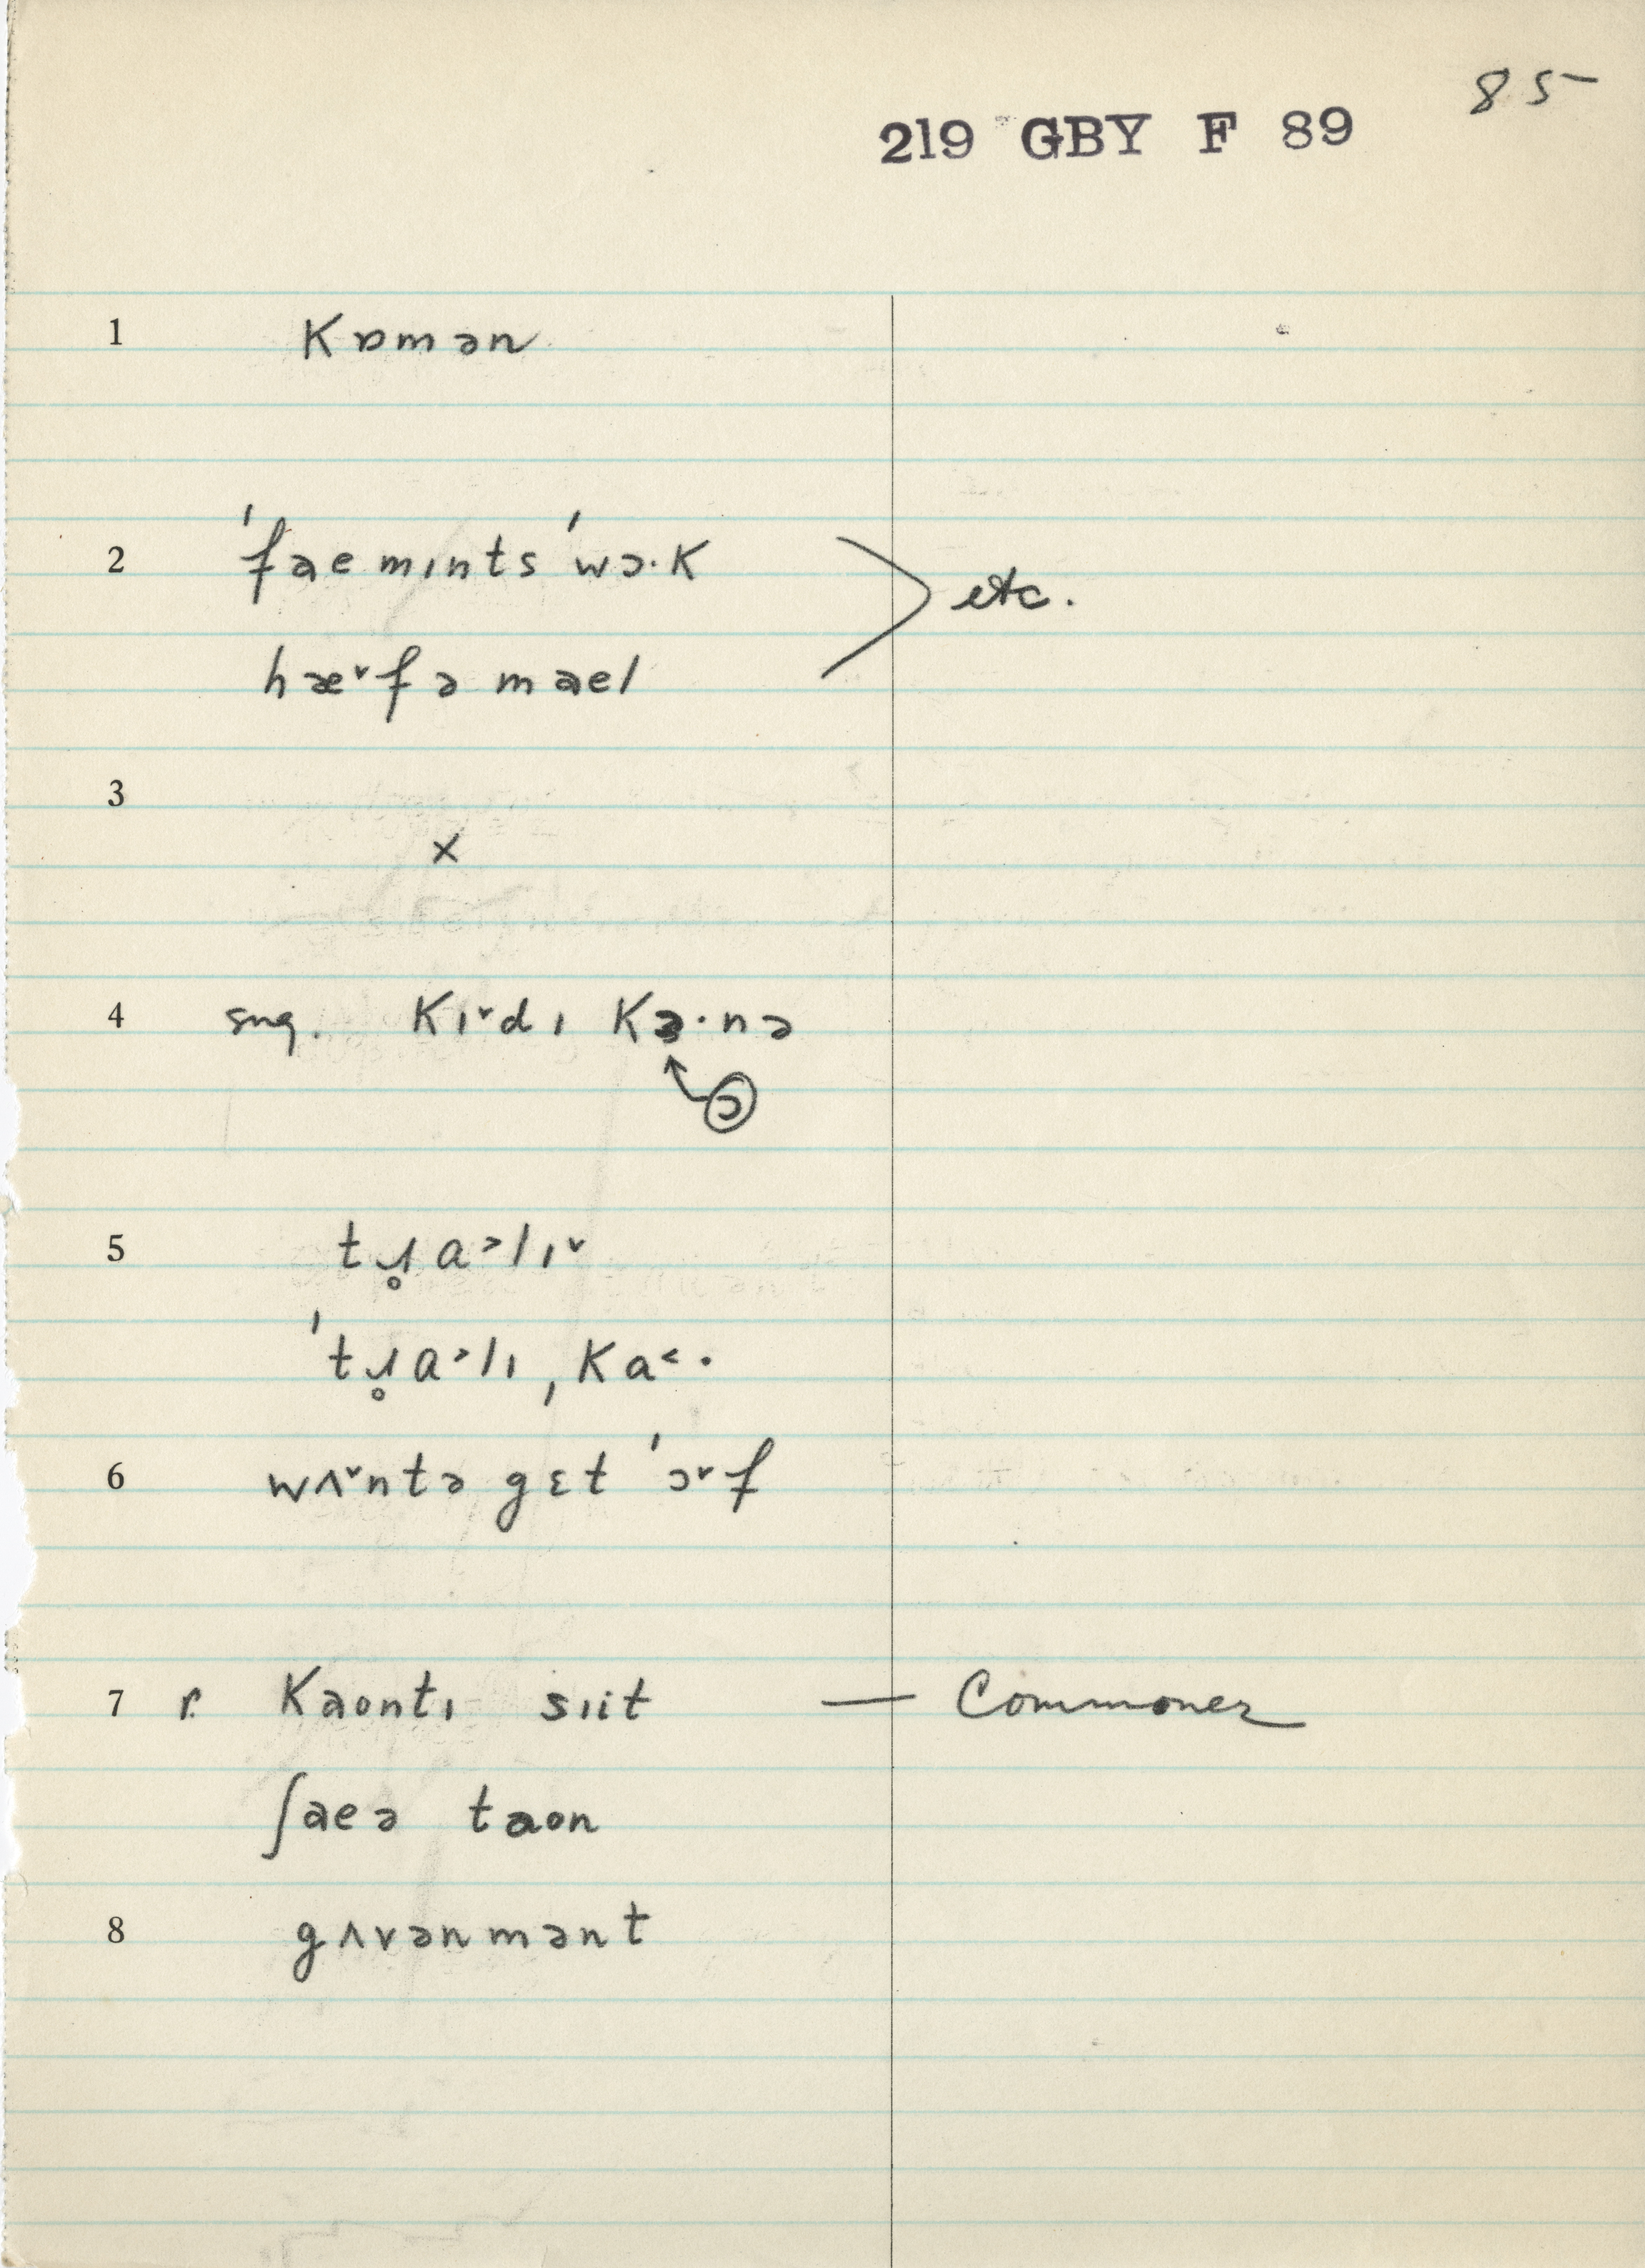 85
219 GBY F 89
1 Kɒmən
2 ˈfaemɪnts ˈwɔ·K
etc.
hæ˅fə mael
3
×
4 sug. Kɪ˅dɪ Kɔ·nə
ɔ
5 tɹ̥a˃lɪ˅
ˈtɹ̥a˃lɪ ˌKa˂·
6 wʌ˅ntə gɛt ˈɔ˅f
7 r. Kaontɪ sɪit — Commoner
ʃaeə taon
8 gʌvənmənt